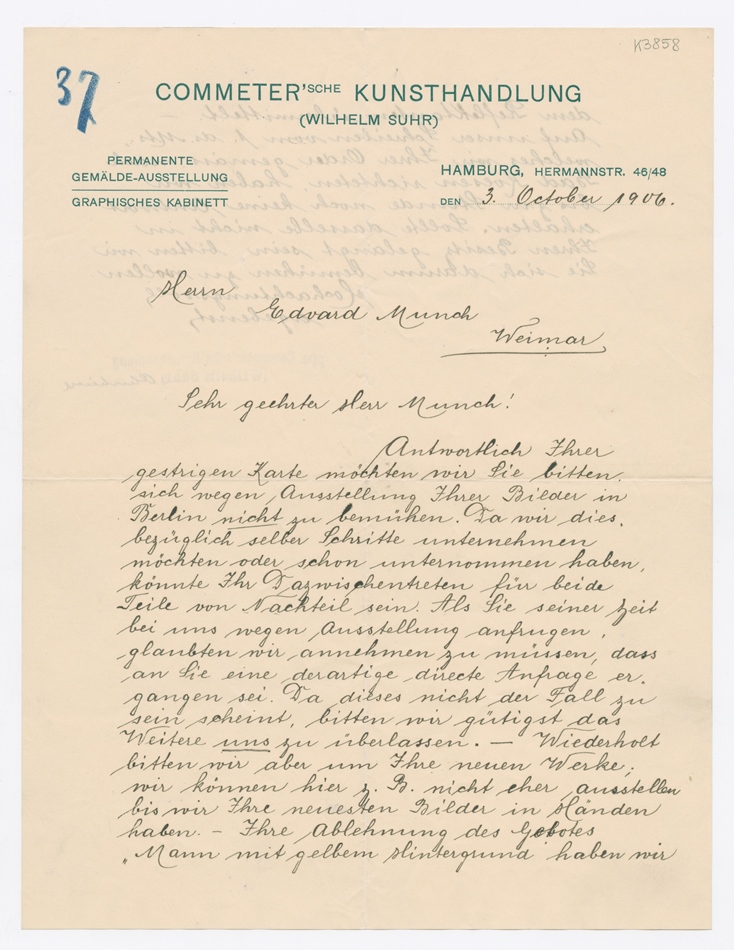 K3858
37
COMMETER'SCHE KUNSTHANDLUNG
(WILHELM SUHR)
PERMANENTE
GEMÄLDE-AUSSTELLUNG
GRAPHISCHES KABINETT
HAMBURG, HERMANNSTR. 46/48
DEN 3. October 1906.
Herrn
Edvard Munch
Weimar
Sehr geehrter Herr Munch!
Antwortlich Ihrer
gestrigen Karte möchten wir Sie bitten,
sich wegen Ausstellung Ihrer Bilder in
Berlin nicht zu bemühen. Da wir dies,
bezüglich selber Schritte unternehmen
möchten oder schon unternommen haben,
könnte Ihr Dazwischentreten für beide
Teile von Nachteil sein. Als Sie seiner Zeit
bei uns wegen Ausstellung anfrugen,
glaubten wir annehmen zu müssen, dass
an Sie eine derartige directe Anfrage er,
gangen sei. Da dieses nicht der Fall zu
sein scheint, bitten wir gütigst das
Weitere uns zu überlassen. — Wiederholt
bitten wir aber um Ihre neuen Werke;
wir können hier z. B. nicht eher ausstellen
bis wir Ihre neuesten Bilder in Händen
haben. — Ihre Ablehnung des Gebotes
„Mann mit gelbem Hintergrund" haben wir